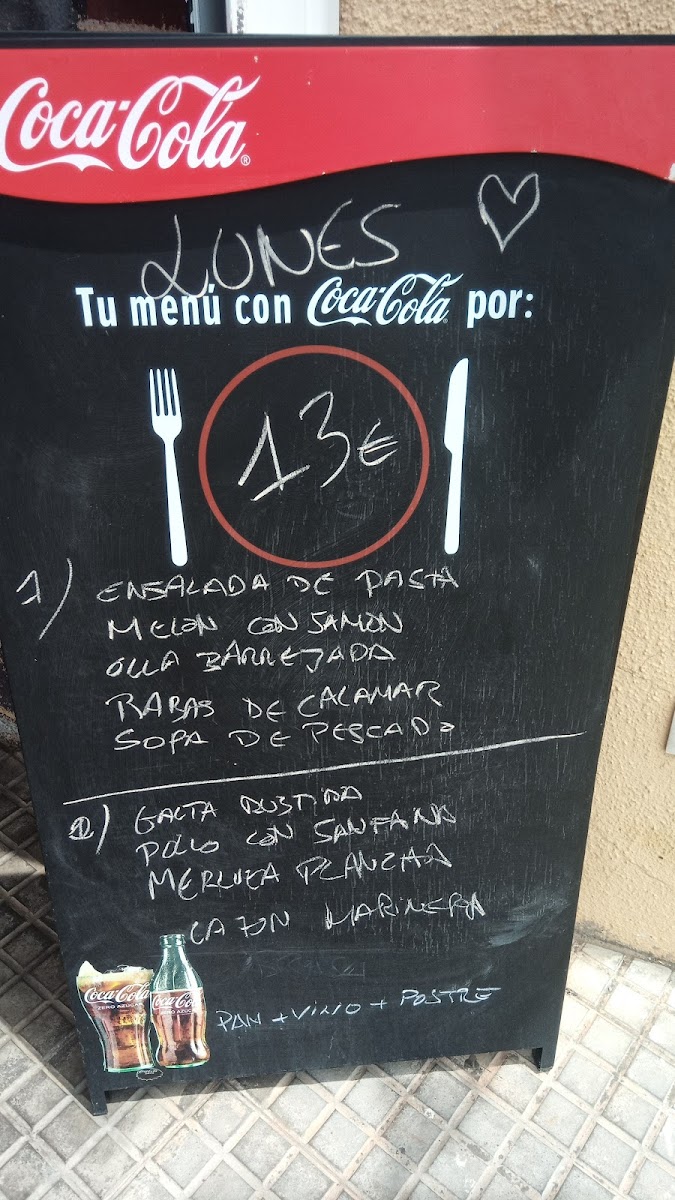 Coca-Cola®
LUNES
Tu menú con Coca-Cola por:
13€
1) ENSALADA DE PASTA
MELON CON JAMON
OLLA BARREJADA
RABAS DE CALAMAR
SOPA DE PESCADO
2) GALTA RUSTIDA
POLLO CON SANFAINA
MERLUZA PLANCHA
CAZON MARINERA
Coca-Cola
ZERO AZÚCAR
Coca-Cola
ZERO AZÚCAR
PAN + VINO + POSTRE